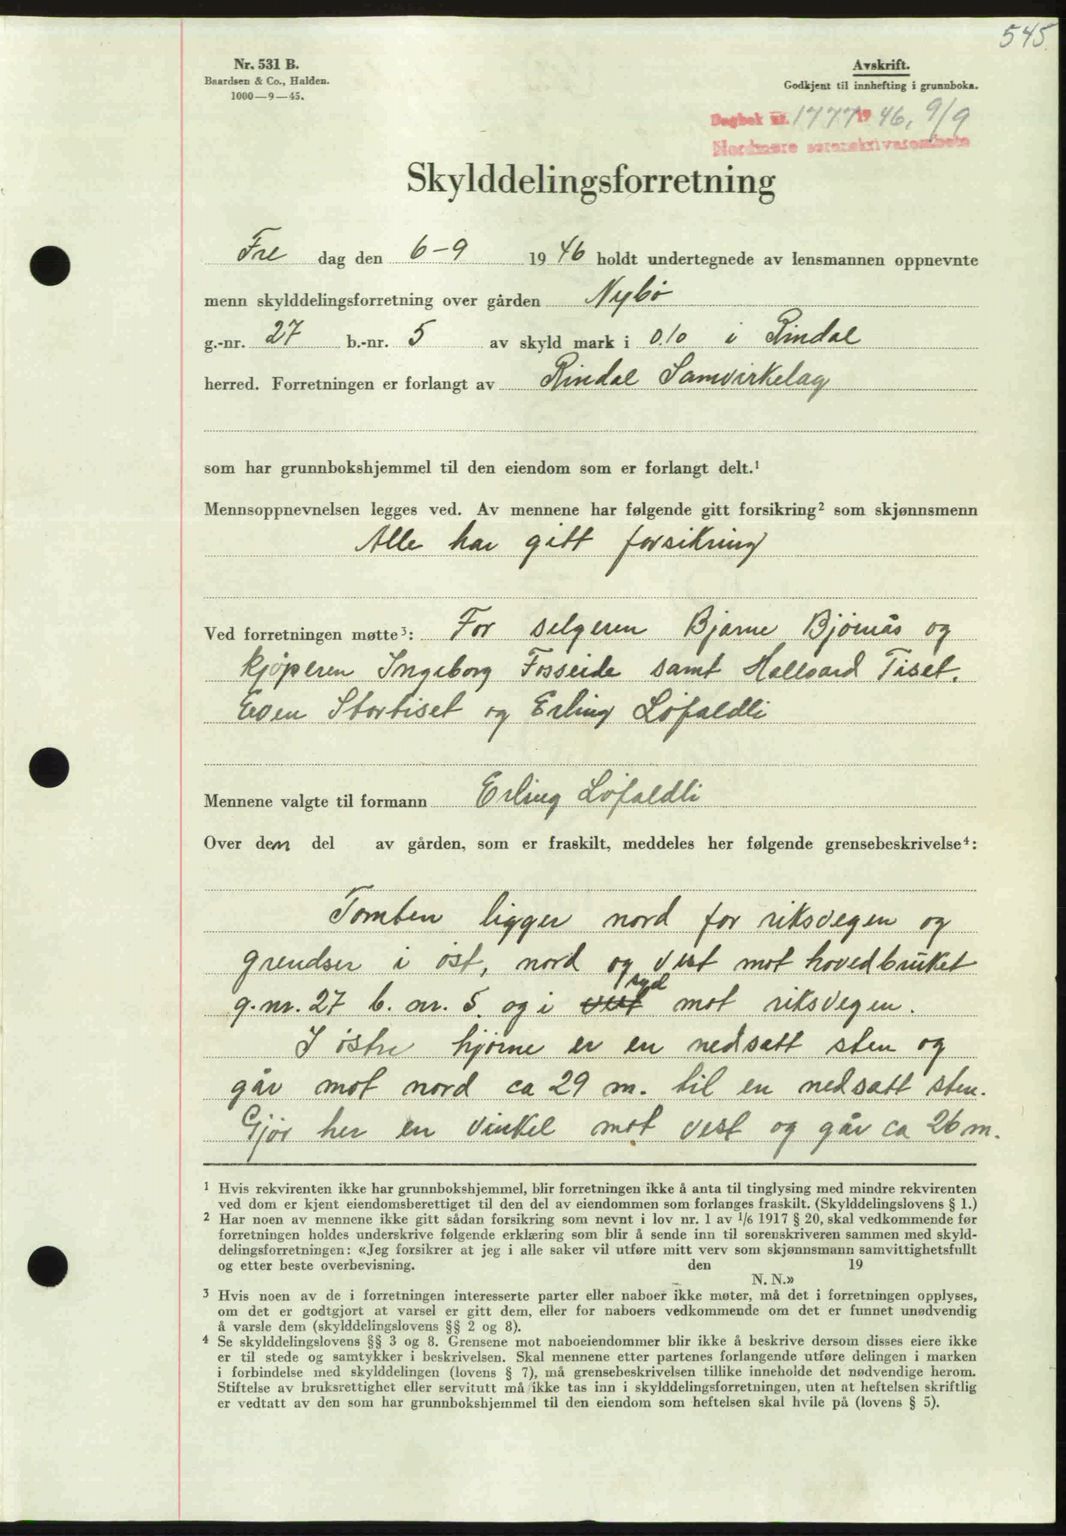 545
Nr. 531 B.
Baardsen & Co., Halden.
1000—9—45.
Avskrift.
Godkjent til innhefting i grunnboka.
Dagbok nr. 1777 1946, 9/9
Nordmøre sorenskriverembete
Skylddelingsforretning
Fre dag den 6-9 1946 holdt undertegnede av lensmannen oppnevnte
menn skylddelingsforretning over gården Nybö
g.-nr. 27 b.-nr. 5 av skyld mark i 0.10 i Rindal
herred. Forretningen er forlangt av Rindal Samvirkelag
som har grunnbokshjemmel til den eiendom som er forlangt delt.¹
Mennsoppnevnelsen legges ved. Av mennene har følgende gitt forsikring² som skjønnsmenn
Alle har gitt forsikring
Ved forretningen møtte³: For selgeren Bjarne Bjørnås og
kjøperen Ingeborg Fosseide samt Hallvard Tiset.
Even Stortiset og Erling Löfaldli
Mennene valgte til formann Erling Löfaldli
Over den del av gården, som er fraskilt, meddeles her følgende grensebeskrivelse⁴:
Tomten ligger nord for riksvegen og
grendser i öst, nord og vest mot hovedbruket
g.nr. 27 b. nr. 5. og i vest syd mot riksvegen.
I östre hjörne er en nedsatt sten og
går mot nord ca 29 m. til en nedsatt sten.
Gjör her en vinkel mot vest og går ca 26 m.
¹ Hvis rekvirenten ikke har grunnbokshjemmel, blir forretningen ikke å anta til tinglysing med mindre rekvirenten
ved dom er kjent eiendomsberettiget til den del av eiendommen som forlanges fraskilt. (Skylddelingslovens § 1.)
² Har noen av mennene ikke gitt sådan forsikring som nevnt i lov nr. 1 av 1/6 1917 § 20, skal vedkommende før
forretningen holdes underskrive følgende erklæring som blir å sende inn til sorenskriveren sammen med skyld-
delingsforretningen: «Jeg forsikrer at jeg i alle saker vil utføre mitt verv som skjønnsmann samvittighetsfullt
og etter beste overbevisning. den 19
N. N.»
³ Hvis noen av de i forretningen interesserte parter eller naboer ikke møter, må det i forretningen opplyses,
om det er godtgjort at varsel er gitt dem, eller for naboers vedkommende om det er funnet unødvendig
å varsle dem (skylddelingslovens §§ 2 og 8).
⁴ Se skylddelingslovens §§ 3 og 8. Grensene mot naboeiendommer blir ikke å beskrive dersom disses eiere ikke
er til stede og samtykker i beskrivelsen. Skal mennene etter partenes forlangende utføre delingen i marken
i forbindelse med skylddelingen (lovens § 7), må grensebeskrivelsen tillike inneholde det nødvendige herom.
Stiftelse av bruksrettighet eller servitutt må ikke tas inn i skylddelingsforretningen, uten at heftelsen skriftlig
er vedtatt av den som har grunnbokshjemmel til den eiendom som heftelsen skal hvile på (lovens § 5).